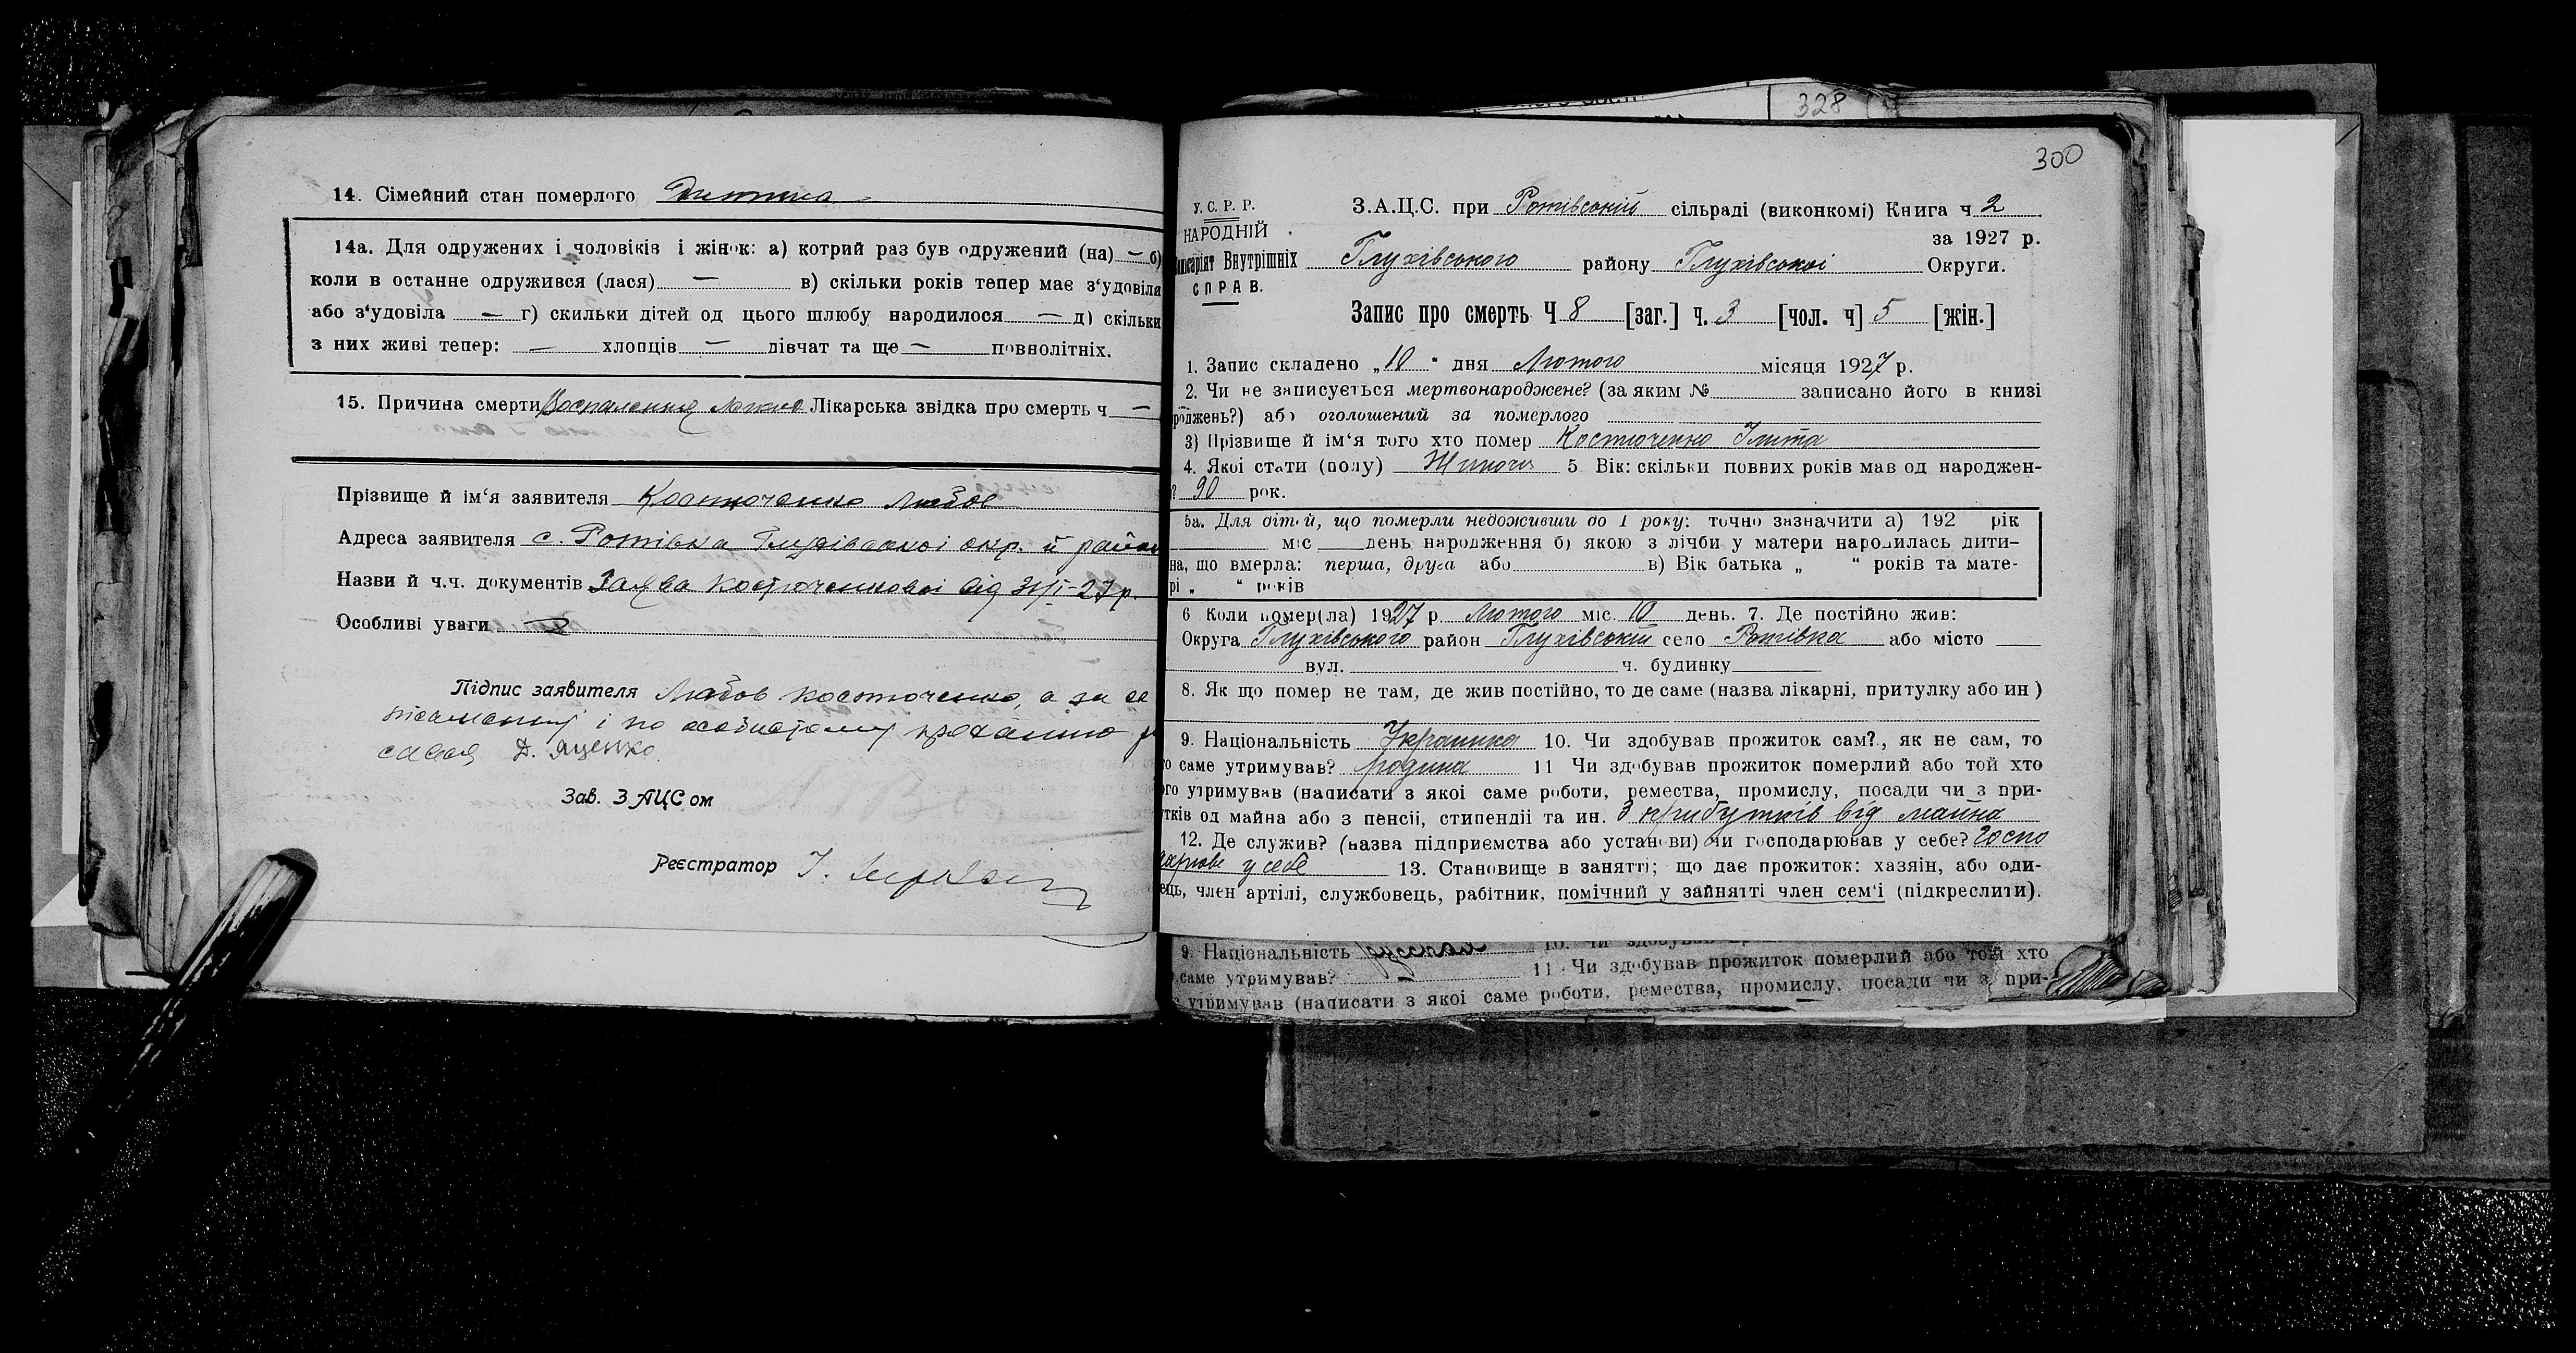 14. Сімейний стан померлого Дитина
14а. Для одружених і чоловіків і жінок: а) котрий раз був одружений (на) — б)
коли в останне одружився (лася) — в) скільки років тепер має з‘удовіла
або з‘удовіла — г) скильки дітей од цього шлюбу народилося — д) скільки
з них живі тепер: — хлопців — дівчат та ще — повнолітніх.
15. Причина смерти Воспаления Легких Лікарська звідка про смерть ч —
Прізвище й ім‘я заявителя Костюченко Любов
Адреса заявителя с. Ротівка Глухівської окр. й район
Назви й ч.ч. документів Заява Костюченкової від 31/I-27 р.
Особливі уваги
Підпис заявителя Любов Костюченко, а за ее
і по особистому проханню
Д. Яценко.
Зав. ЗАЦСом
Реєстратор
328
300
У. С. Р. Р.
НАРОДНІЙ
Комісаріят Внутрішніх
СПРАВ.
З.А.Ц.С. при Ротівській сільраді (виконкомі) Книга ч 2
за 1927 р.
Глухівського району Глухівської Округи.
Запис про смерть Ч 8 [заг.] ч. 3 [чол. ч] 5 [жін.]
1. Запис складено „10“ дня Лютого місяця 1927 р.
2. Чи не записується мертвонароджене? (за яким № записано його в книзі
роджень?) або оголошений за померлого
3) Прізвище й ім‘я того хто помер Костюченко
4. Якої стати (полу) Жиноча 5 Вік: скільки повних років мав од народжен-
? 90 рок.
5а. Для дітей, що померли недоживши до 1 року: точно зазначити а) 192 рік
міс день народження б) якою з лічби у матери народилась дити-
на, що вмерла: перша, друга або в) Вік батька „ “ років та мате-
рі „ “ років
6 Коли помер(ла) 1927 р. Лютого міс. 10 день. 7. Де постійно жив:
Округа Глухівського район Глухівській село Ротівка або місто —
вул. ч. будинку
8. Як що помер не там, де жив постійно, то де саме (назва лікарні, притулку або ин )
9. Національність Украинка 10. Чи здобував прожиток сам?, як не сам, то
то саме утримував? родина 11 Чи здобував прожиток померлий або той хто
ого утримував (написати з якої саме роботи, ремества, промислу, посади чи з при-
тків од майна або з пенсії, стипендії та ин. З прибутків від майна
12. Де служив? (назва підприємства або установи) чи господарював у себе? Госпо
у себе 13. Становище в занятті; що дає прожиток: хазяін, або оди-
ець, член артілі, службовець, рабітник, помічний у зайнятті член сем‘і (підкреслити).
9. Національність 10. Чи здобував
саме утримував? — 11. Чи здобував прожиток померлий або той хто
утримував (написати з якої саме роботи, ремества, промислу, посади чи з при-